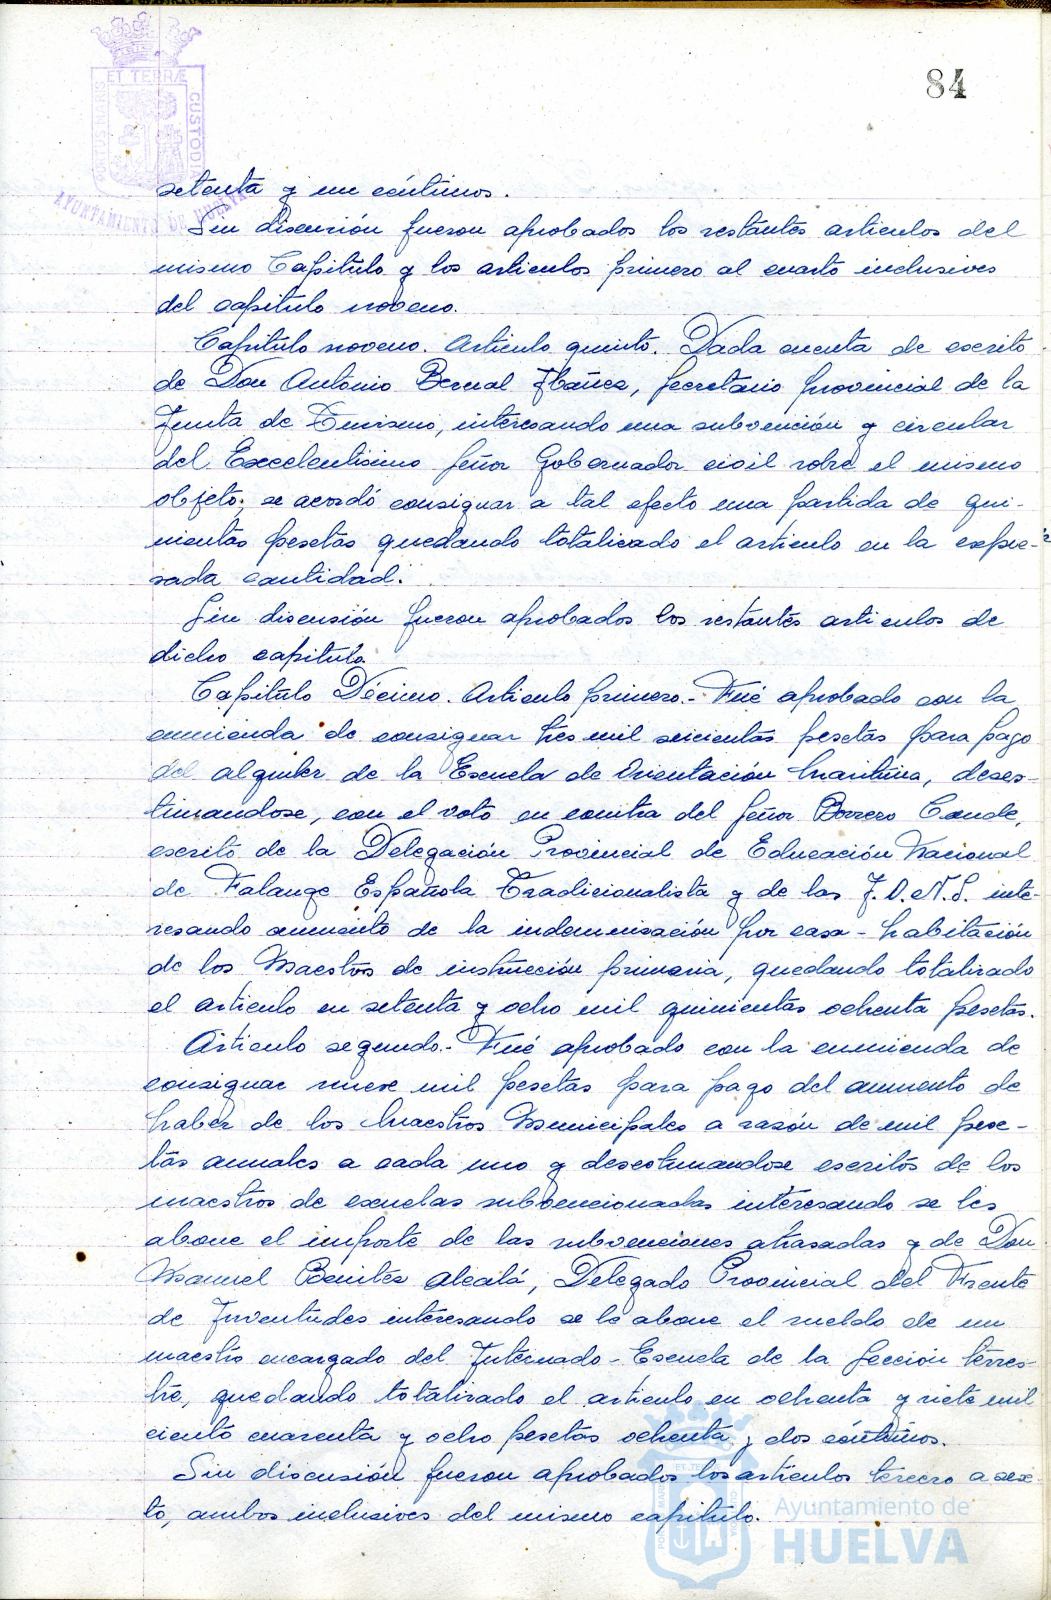 84
PORTUS MARIS
ET TERRÆ
CUSTODIA
AYUNTAMIENTO DE HUELVA
setenta y un céntimos.
Sin discusión fueron aprobados los restantes articulos del
mismo Capitulo y los articulos primero al cuarto inclusives
del capitulo noveno.
Capitulo noveno. Articulo quinto. Dada cuenta de escrito
de Don Antonio Bernal Ibañez, Secretario provincial de la
Junta de Turismo, interesando una subvención y circular
del Excelentisimo Señor Gobernador civil sobre el mismo
objeto; se acordó consignar a tal efecto una partida de qui-
nientas pesetas quedando totalizado el articulo en la expre-
sada cantidad.
Sin discusión fueron aprobados los restantes articulos de
dicho capitulo.
Capitulo Décimo. Articulo primero.- Fué aprobado con la
enmienda de consignar tres mil seicientas pesetas para pago
del alquiler de la Escuela de Orientación Maritima, deses-
timandose, con el voto en contra del Señor Borrero Conde,
escrito de la Delegación Provincial de Educación Nacional
de Falange Española Tradicionalista y de las J.O.N.S. inte-
resando aumento de la indemnización por casa-habitación
de los Maestros de instrucción primaria, quedando totalizado
el articulo en setenta y ocho mil quinientas ochenta pesetas.
Articulo segundo.- Fué aprobado con la enmienda de
consignar nueve mil pesetas para pago del aumento de
haber de los Maestros Municipales a razón de mil pese-
tas anuales a cada uno y desestimandose escritos de los
maestros de escuelas subvencionadas interesando se les
abone el importe de las subvenciones atrasadas y de Don
Manuel Benitez Alcalá, Delegado Provincial del Frente
de Juventudes interesando se le abone el sueldo de un
maestro encargado del Internado-Escuela de la Sección terres-
tre, quedando totalizado el articulo en ochenta y siete mil
ciento cuarenta y ocho pesetas ochenta y dos céntimos.
Sin discusión fueron aprobados los articulos tercero a sex-
to, ambos inclusives del mismo capitulo.
Ayuntamiento de
HUELVA